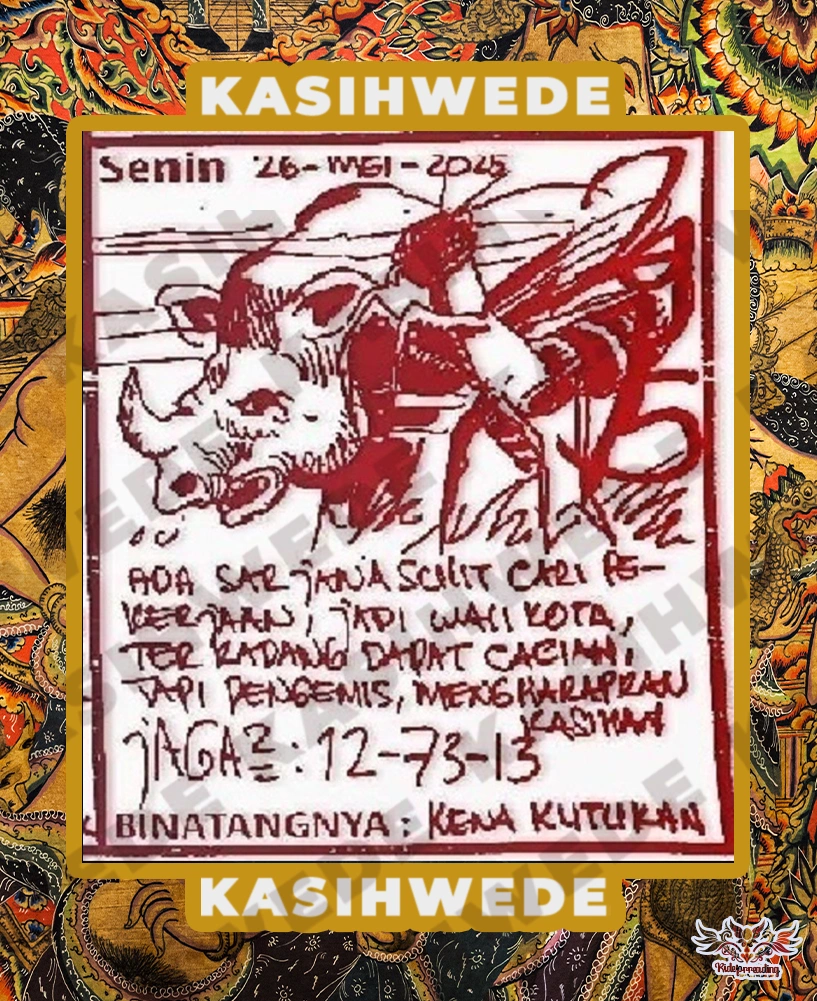 KASIHWEDE
Senin 26-MEI-2025
ADA SARJANA SULIT CARI PE-
KERJAAN, JADI WALI KOTA,
TERKADANG DAPAT CACIAN,
TAPI PENGEMIS, MENGHARAPKAN
KASIHAN
JAGA2 : 12-73-13
BINATANGNYA : KENA KUTUKAN
KASIHWEDE